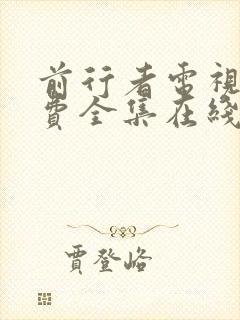 前行者電視
費全集在綫
賈登峪